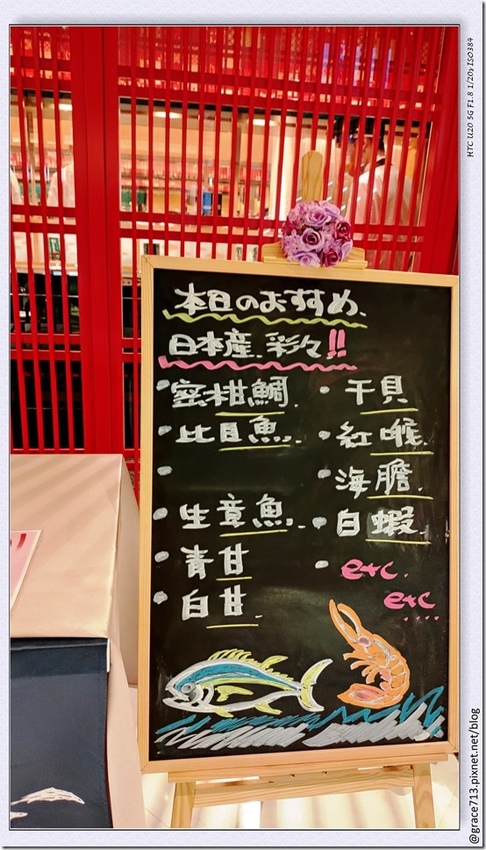 本日のおすすめ、
日本産.彩々!!
蜜柑鯛.
比目魚.
生章魚.
青甘
白甘.
干貝
紅喉.
海膽.
白蝦.
etc.
etc
HTC U20 5G F1.8 1/20s ISO384
@grace713.pixnet.net/blog